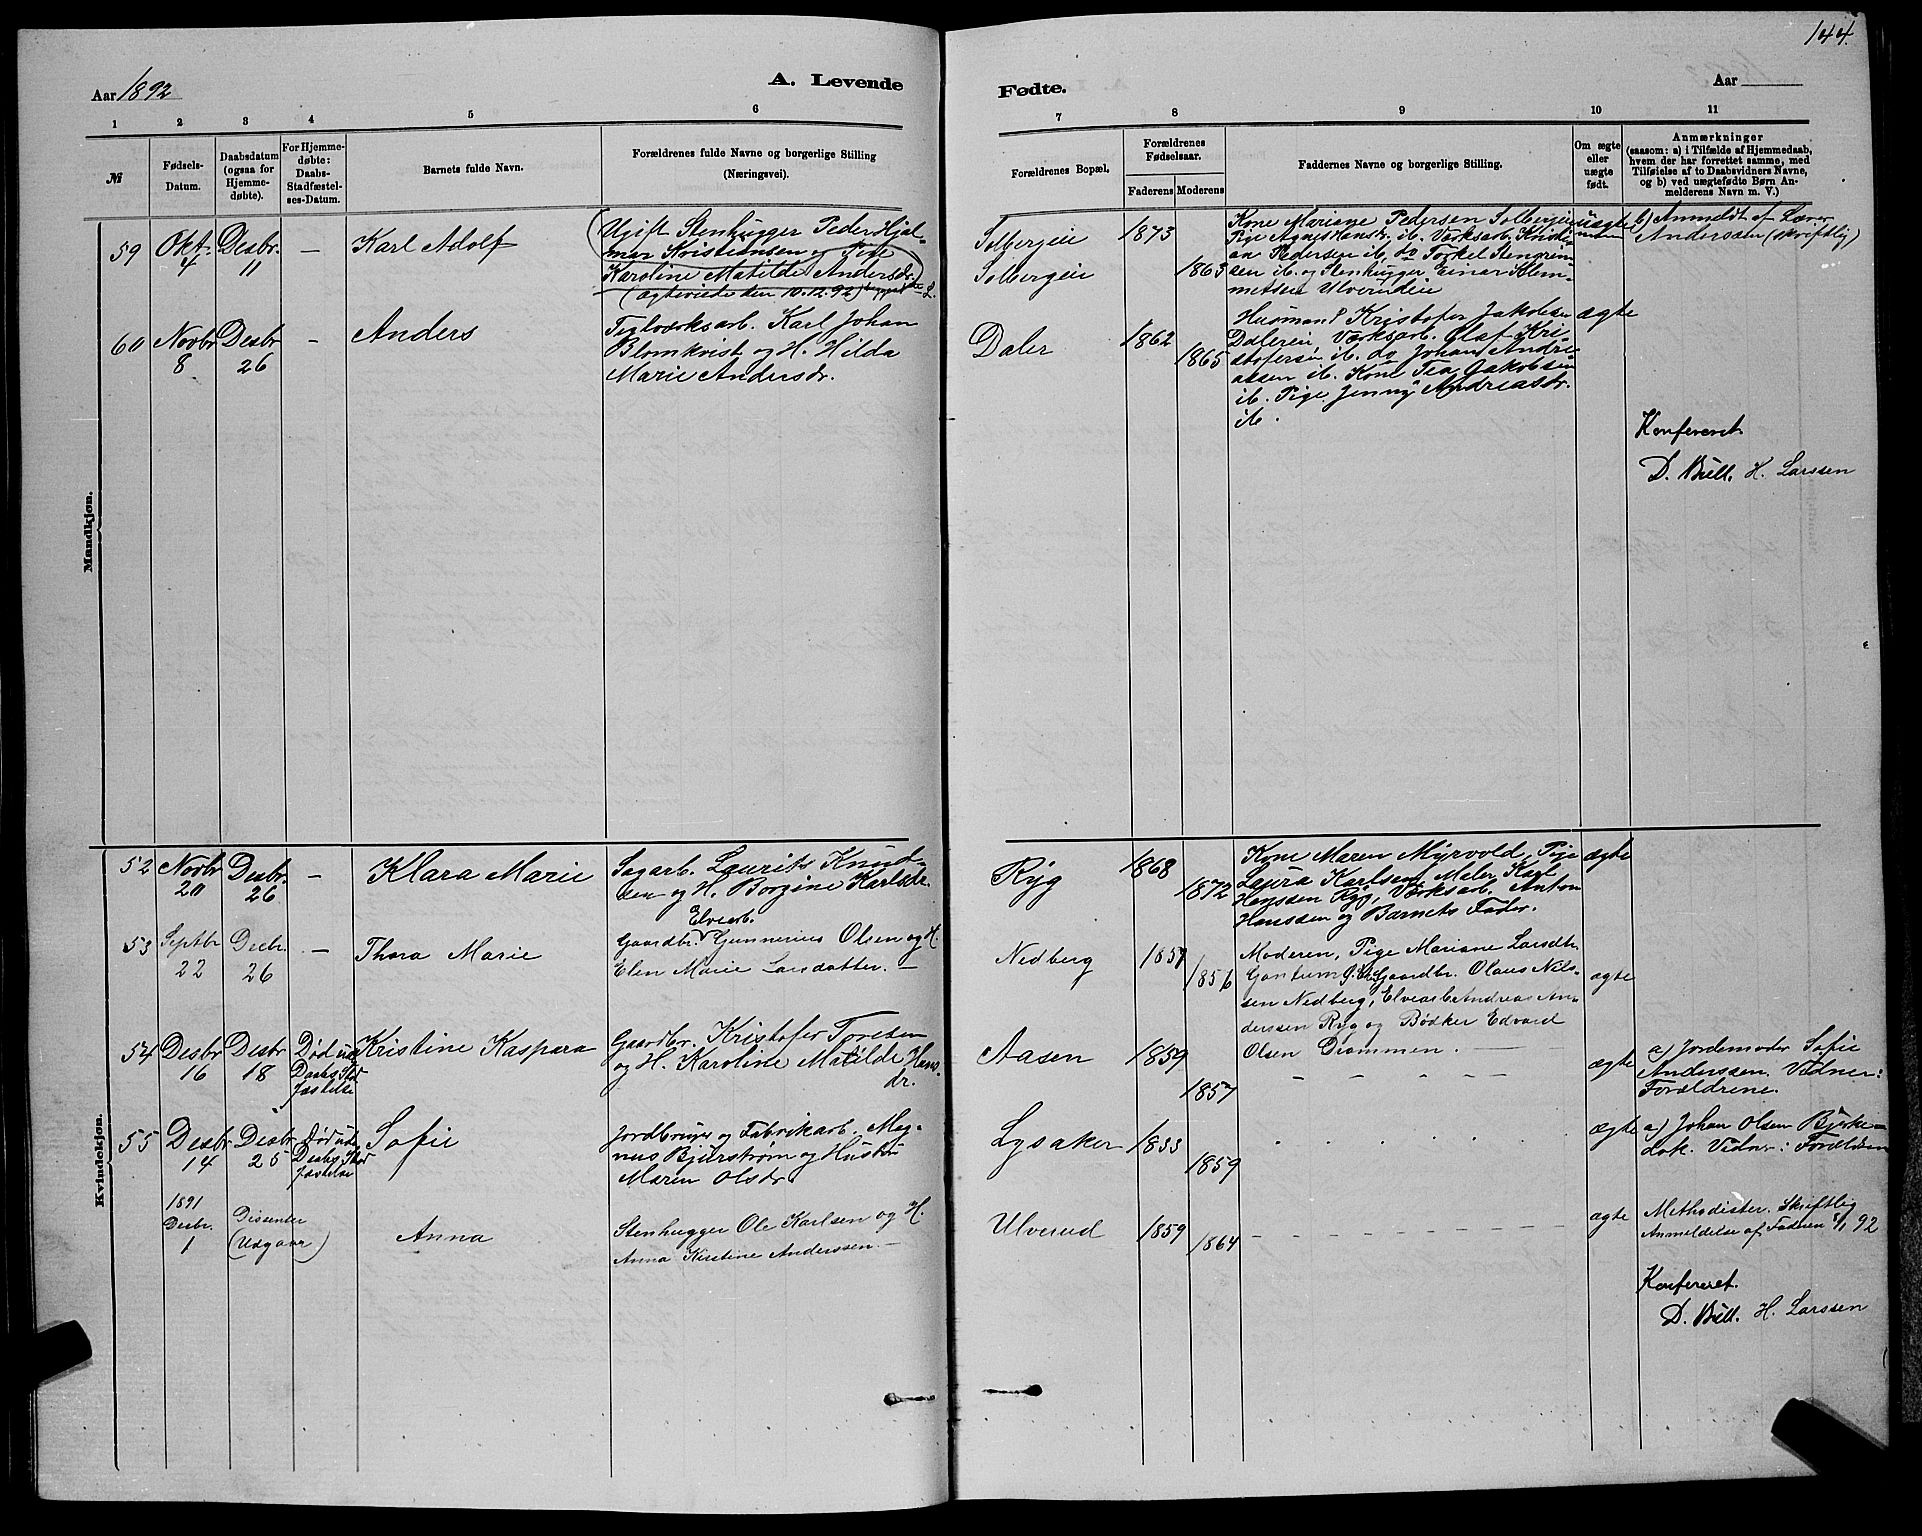 144.
Aar 1892
A. Levende
Fødte.
Aar
1
2
3
4
5
6
7
8
9
10
11
№
Fødsels-
Datum.
Daabsdatum
(ogsaa for
Hjemme-
døbte).
For Hjemme-
døbte:
Daabs-
Stadfæstel-
ses-Datum.
Barnets fulde Navn.
Forældrenes fulde Navne og borgerlige Stilling
(Næringsvei).
Forældrenes Bopæl,
Forældrenes
Fødselsaar.
Faderens Moderens
Faddernes Navne og borgerlige Stilling.
Om ægte
eller
uægte
født.
Anmærkninger
(saasom: a) i Tilfælde af Hjemmedaab,
hvem der har forrettet samme, med
Tilføielse af to Daabsvidners Navne,
og b) ved uægtefødte Børn An-
melderens Navn m. V.)
Mandkjøn.
59
Okt.
4
Desbr.
11
—
Karl Adolf
Ugift Stenhugger Peder Hjal-
mar Kristiansen og Pige
Karoline Matilde Andersdr.
(ægteviede den 10.12.92)
Solbergeie
Solbergeie
1873
1863
Kone Mariane Pedersen Solbergeie
Pige Agnes Hansdr. ib. Værksarb. Kristi-
an Pedersen ib. do Torkel Stengrim-
sen ib. og Stenhugger Einar Klem-
metsen Ulverudeie
uægte
b) Anmeldt af Lærer
Anderssen (skriftlig)
60
Novbr
8
Desbr
26
-
Anders
Teglværksarb. Karl Johan
Blomkvist og H. Hilda
Marie Andersdr.
Daler
1862
1865
Husmand Kristofer Jakobsen
Dalereie, Værksarb. Olaf Kri-
stofersen ib. do Johan Andre-
assen ib. Kone Tea Jakobsen
ib. Pige Jenny Andreasdr.
ib.
ægte
Konfereret
D. Bull. H. Larssen
Kvindekjøn.
52
Novbr
20
Desbr.
26
—
Klara Marie
Sagarb. Laurits Knud-
sen og H. Borgine Karlsdr.
Ryg
1868
1872
Kone Maren Myrvold, Pige
Laura Karlsen, Maler Karl
Hanssen Ryg, Værksarb. Anton
Hanssen og Barnets Fader.
ægte
53
Septbr
22
Desbr.
26
—
Thora Marie
Elvearb.
Gaardbr. Gunnerius Olsen og H.
Elen Marie Larsdatter. —
Nedberg
1857
1856
Moderen, Pige Mariane Larsdtr.
Gaardbr. Olaus Nils-
sen Nedberg, Elvearb Andreas An-
derssen Ryg og Bødker Edvard
Olsen Drammen. —
ægte
54
Desbr
16
Desbr
18
Død uden
Daabs Stad
fæstelse
Kristine Kaspara
Gaardbr. Kristofer Toresen
og H. Karoline Matilde Hans-
dr.
Aasen
1859
1857
ægte
a) Jordemoder Sofie
Anderssen. Vidner:
Forældrene.
55
Desbr
14
Desbr
25
Død uden
Daabs Stad
fæstelse
Sofie
Jordbruger og Fabrikarb. Mag-
nus Bjurstrøm og Hustru
Maren Olsdr.
Lysaker
1833
1859
ægte
a) Johan Olsen Bjerke-
dok. Vidner: Forældrene
1891
Desbr.
1
Dissenter
(Udgaar)
Anna
Stenhugger Ole Karlsen og H.
Anna Kirstine Anderssen. —
Ulverud
1859
1864
ægte
Methodister. Skriftlig
Anmeldelse af Faderen 8/1 92
Konfereret.
D. Bull. H. Larssen